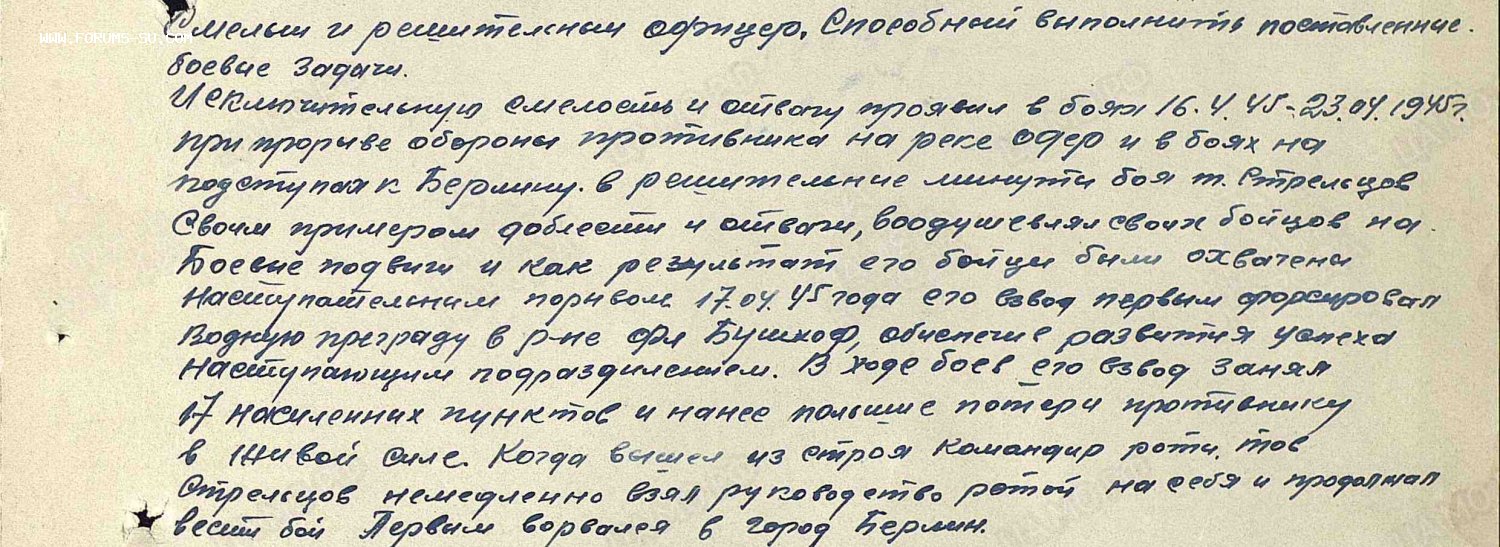 Смелый и решителный офицер. Способный выполнить поставленные.
WWW.FORUMS-SU.COM
боевые задачи.
Исключительную смелость и отвагу проявил в боях 16.4.45-23.04.1945г.
при прорыве обороны противника на реке Одер и в боях на
подступах к Берлину. в решительные минуты боя т. Стрельцов
Своим примером доблести и отваги, воодушевлял своих бойцов на
Боевые подвиги и как результат его бойцы были охвачены
наступательным порывом 17.04.45 года его взвод первым форсировал
Водную преграду в р-не Фл Бушхоф, обиспечив развития успеха
наступающим подразделением. В ходе боев его взвод занял
17 насиленных пунктов и нанес польшие потери противнику
в живой силе. Когда вышел из строя командир роты. тов
Стрельцов немедленно взял руководство ротой на себя и продолжал
вести бой Первым ворвался в город Берлин.